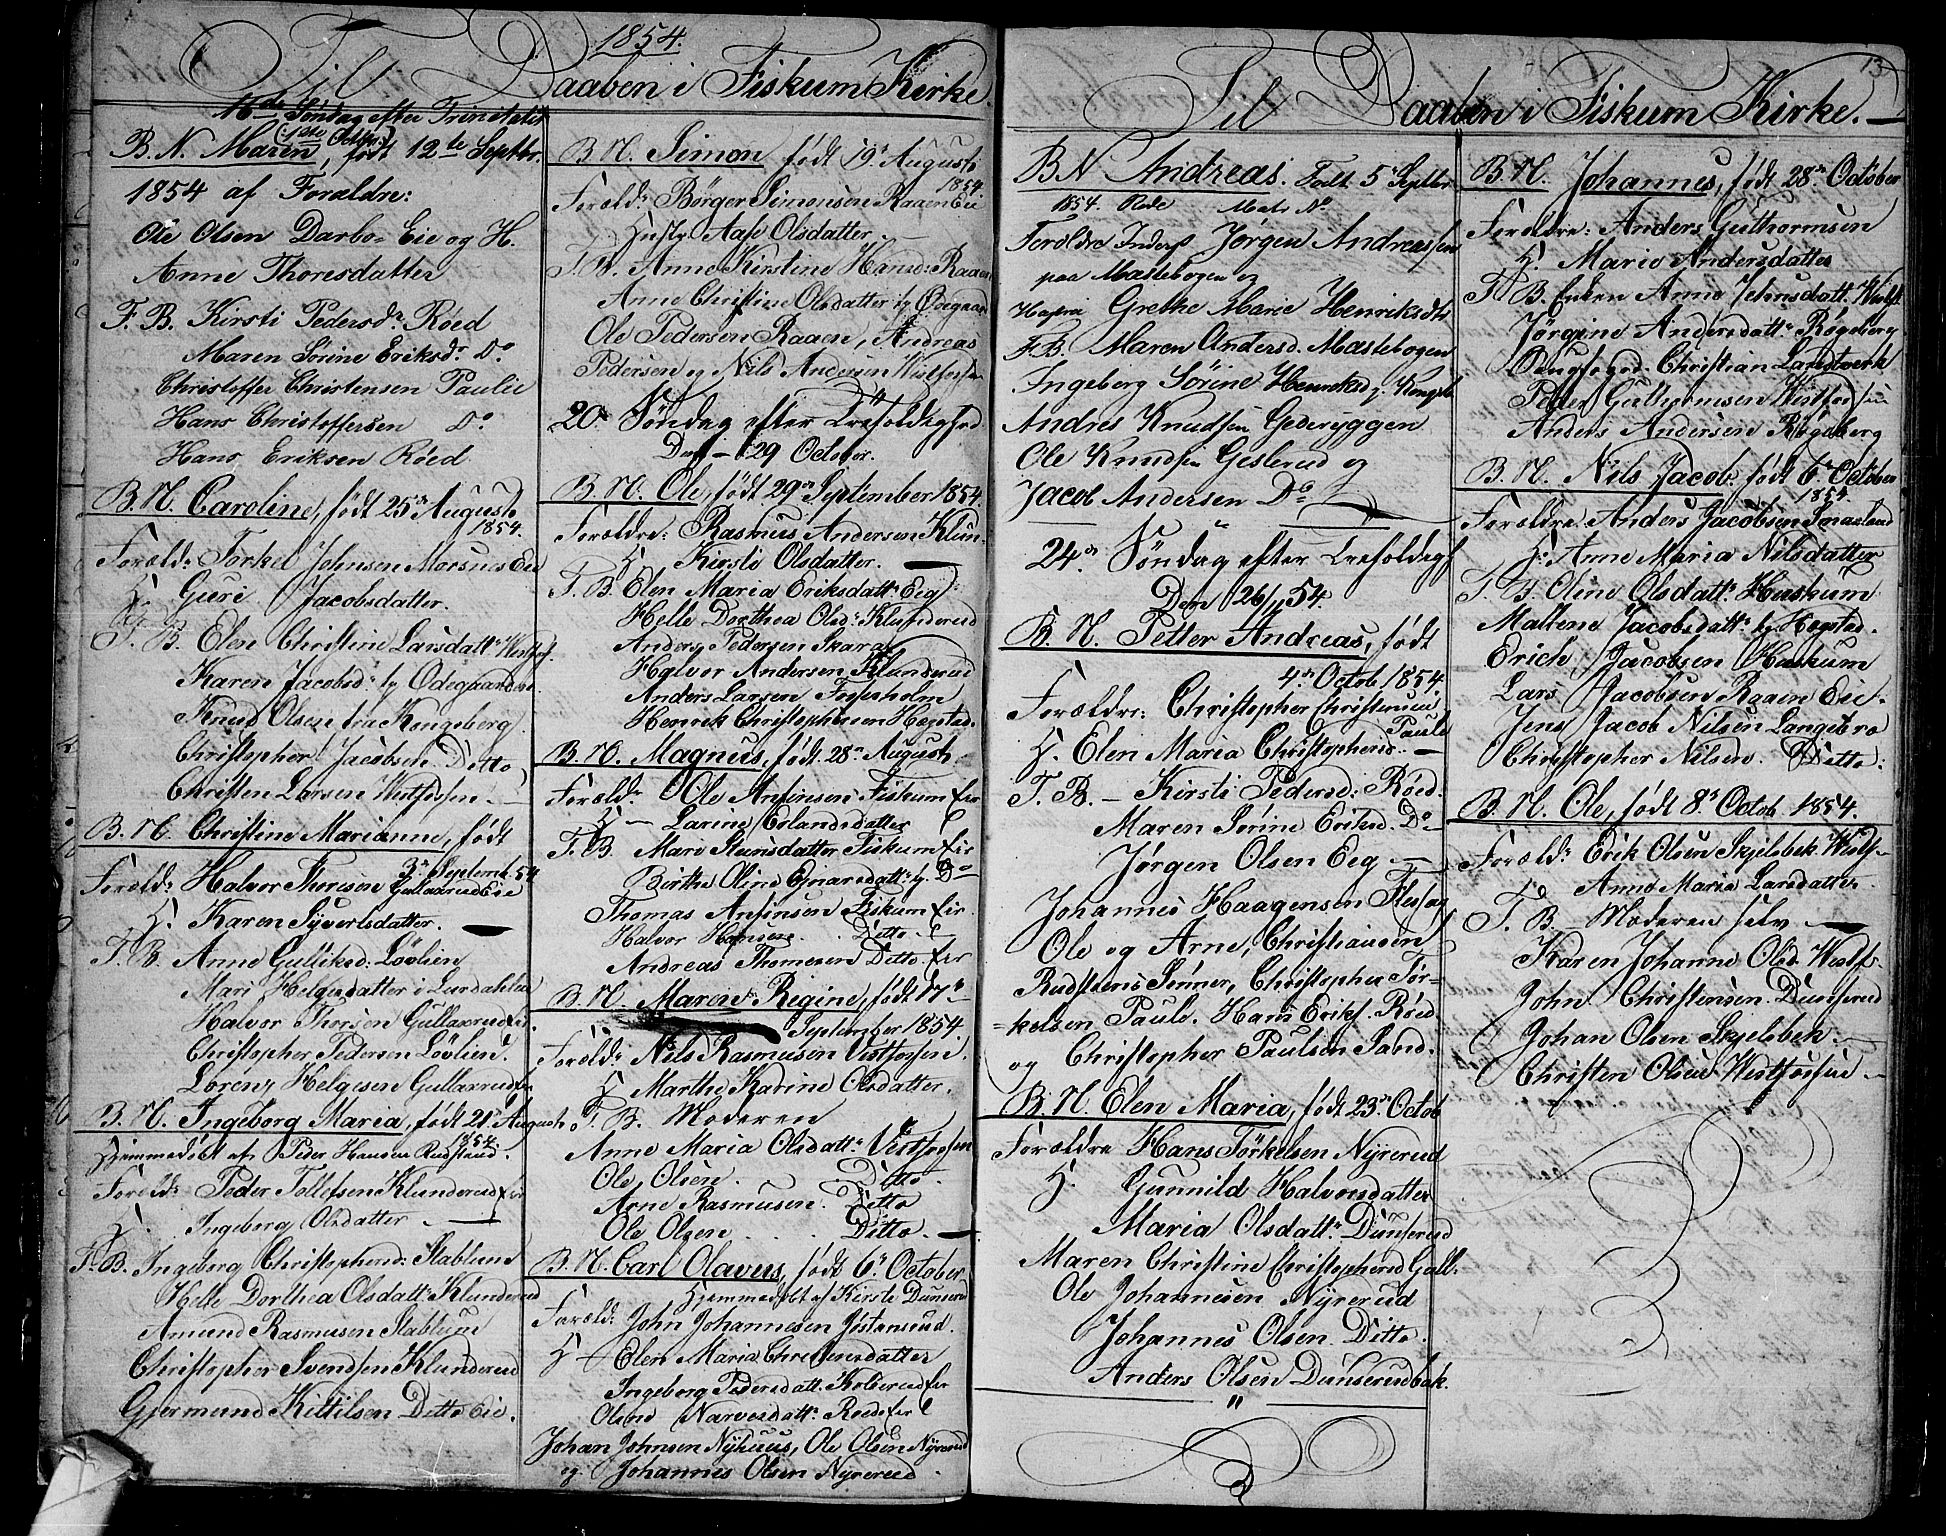 1854.
Til Daaben i Fiskum Kirke
16de Søndag efter Trinitatis
(1ste October)
B. N. Maren, født 12te Septbr.
1854 af Foraldre:
Ole Olsen Darbo- Eie og H.
Anne Thoresdatter
F. B. Kirsti Pedersdr Røed
Maren Sørine Eriksdr Do
Christoffer Christensen Paulie
Hans Christoffersen Do
Hans Eriksen Røed
B. N. Caroline, født 25de August
1854.
Foræld: Torkel Johnsen Morsnes Eie
H Guri Jacobsdatter.
F. B. Elen Christine Larsdattr Westfos.
Karen Jacobsdr by Ødegaarden.
Knud Olsen fra Kongsberg.
Christopher Jacobsen Ditto
Christen Larsen Westfossen.
B. N. Christine Marianne, født
3de Septemb. 54
Forældr Halvor Thorsen Gullaxrud Eie
H. Karen Syvertsdatter.
F. B. Anne Gulliksd: Løvlien
Mari Helgesdatter i Lurdahlen
Halvor Thorsen Gullaxrud eie.
Christopher Pedersen Løvlien.
Lorenz Helgesen Gullaxrud eie
B. N. Ingeborg Maria, født 21de August
1854.
Hjemmedøbt af Peder Hansen Rudstuud.
Forældr Peder Tollefsen Klunderud Eie
H. Ingeborg Olsdatter
F. B. Ingeborg Christophersd: Stablum
Helle Dorthea Olsdattr Klunderud
Amund Rasmusen Stablum
Christopher Svendsen Klunderud
Gjermund Kittilsen Ditto Eie.
B. N. Simon født 19de August
1854.
Foræld: Børger Simonsen Raaen Eie
Hustr Aase Olsdatter
F. B. Anne Kirstine Hansd: Raaen
Anne Christine Olsdatter by Ødegaard
Ole Pedersen Raaen, Andreas
Pedersen og Nils Andersen Westfossen
20de Søndag efter Trefoldighed
Den 29 October.
B. N. Ole, født 29de September 1854.
Forældre: Rasmus Andersen Klun-
H Kirsti Olsdatter.
F. B. Elen Maria Eriksdattr Eeg
Helle Dorthea Olsdr Klunderud
Anders Pedersen Skara
Halvor Andersen Klunderud
Anders Larsen Fossesholm
Henrik Christophersen Hægstad.
B. N. Magnus, født 28de August
Forældr Ole Anfinsen Fiskum Eie
H Larine Erlandsdatter
F. B. Mari Stensdatter Fiskum Eie
Birthe Oline Ejnarsdattr Do
Thomas Anfinsen Fiskum Eie
Halvor Hansen Ditto
Andreas Thomesen Ditto Eie
B. N. Maren Regine, født 17de
September 1854
Forældr Nils Rasmusen Vestfossen
H Marthe Karine Olsdatter.
F. B. Moderen
Anne Maria Olsdattr Vestfossen
Ole Olsen. Ditto.
Arne Rasmusen. Ditto
Ole Olsen. Ditto.
B. N. Carl Olavus, født 6de October
Hjemmedøbt af Kirsti Dunserud
Foræld: John Johannesen Jøstensrud.
H Elen Maria Christensdatter
Ingeborg Pedersdatt. Kolberud Eie
Olend Narvesdattr Røed Eie
Johan Johnsen Nyhuus, Ole Olsen Nyrerud
og Johannes Olsen Nyrerud.
13
Til Daaben i Fiskum Kirke.
B N Andreas. Født 5te Septbr
1854. Røde Matr No
Forældre Inders Jørgen Andreassen
paa Mastebogen og
Hustru Grethe Marie Henriksdtr
F. B. Maren Andersd. Mastebogen
Ingeberg Sørine Henriksd. Kongsb.
Andres Knudsen Gederyggen
Ole Knudsen Geslerud og
Jacob Andersen Do
24de Søndag efter Trefoldigh
Den 26/11 54.
B. N. Petter Andreas, født
4de Octob 1854
Forældre: Christopher Christensen
Paule
H. Elen Maria Christophersd.
F. B. Kirsti Pedersd: Røed.
Maren Sørine Eriksd. Do
Jørgen Olsen Eeg
Johannes Haagensen Flesag
Ole og Arne, Christiansen
Rudstuens Sønner, Christopher Tør-
kelsen Paule. Hans Eriks. Røed
og Christopher Paulsen Sand.
B. N. Elen Maria, født 23de Octob
Forældre Hans Törkelsen Nyrerud
H. Gunnild Halvorsdatter
Maria Olsdattr Dunserud
Maren Christine Christophersd Gall.
Ole Johannesen Nyrerud
Johannes Olsen Ditto.
Anders Olsen Dunserudbak.
B. N. Johannes, født 28de October
Forældre: Anders Guthormsen
H. Marie Andersdatter
F. B. Enken Anne Johnsdatt. Westf.
Jørgine Andersdattr Røgeberg
Oungsogd. Christian Landtverk
Peder Guthormsen Westfossen
Anders Andersen Røgeberg
B. N. Nils Jacob, født 6te October
1854.
Forældre Anders Jacobsen Smaaland
H: Anne Maria Nilsdatter
F. B. Oline Olsdattr Huskum
Maltene Jacobsdattr by Hægstad.
Erich Jacobsen Huskum
Lars Jacobsen Raaen Eie
Jens Jacob Nilsen Langebro
Christopher Nilsen. Ditto.
B. N. Ole, født 8de Octob 1854.
Forældr Erik Olsen Skjelsbek Westf
Anne Maria Larsdatter
F. B. Moderen selv
Karen Johanne Olsd. Westfs.
John Christensen Dunserud
Johan Olsen Skjelsbek.
Christen Olsen Westfossen